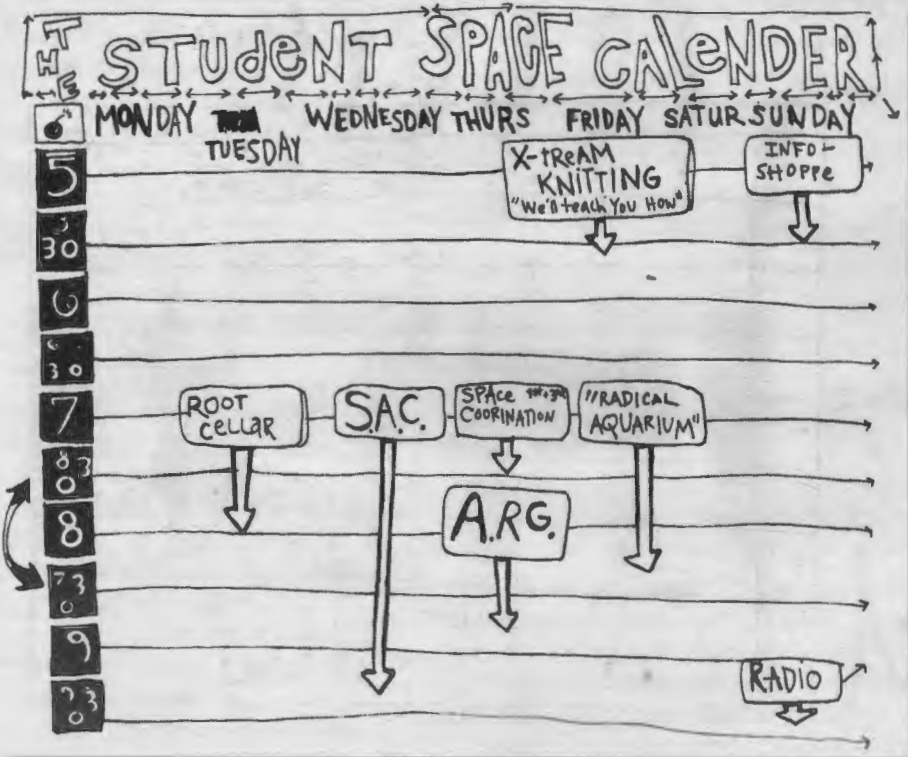 THE STUDENT SPACE CALENDER
MONDAY TUESDAY WEDNESDAY THURS FRIDAY SATUR SUNDAY
5
X-TREAM
KNITTING
"We'll teach You How"
INFO-
SHOPPE
5
30
6
6
30
7
ROOT
Cellar
S.A.C.
SPACE 1st+3rd
COORINATION
"RADICAL
AQUARIUM"
83
0
8
A.RG.
73
0
9
RADIO
93
0